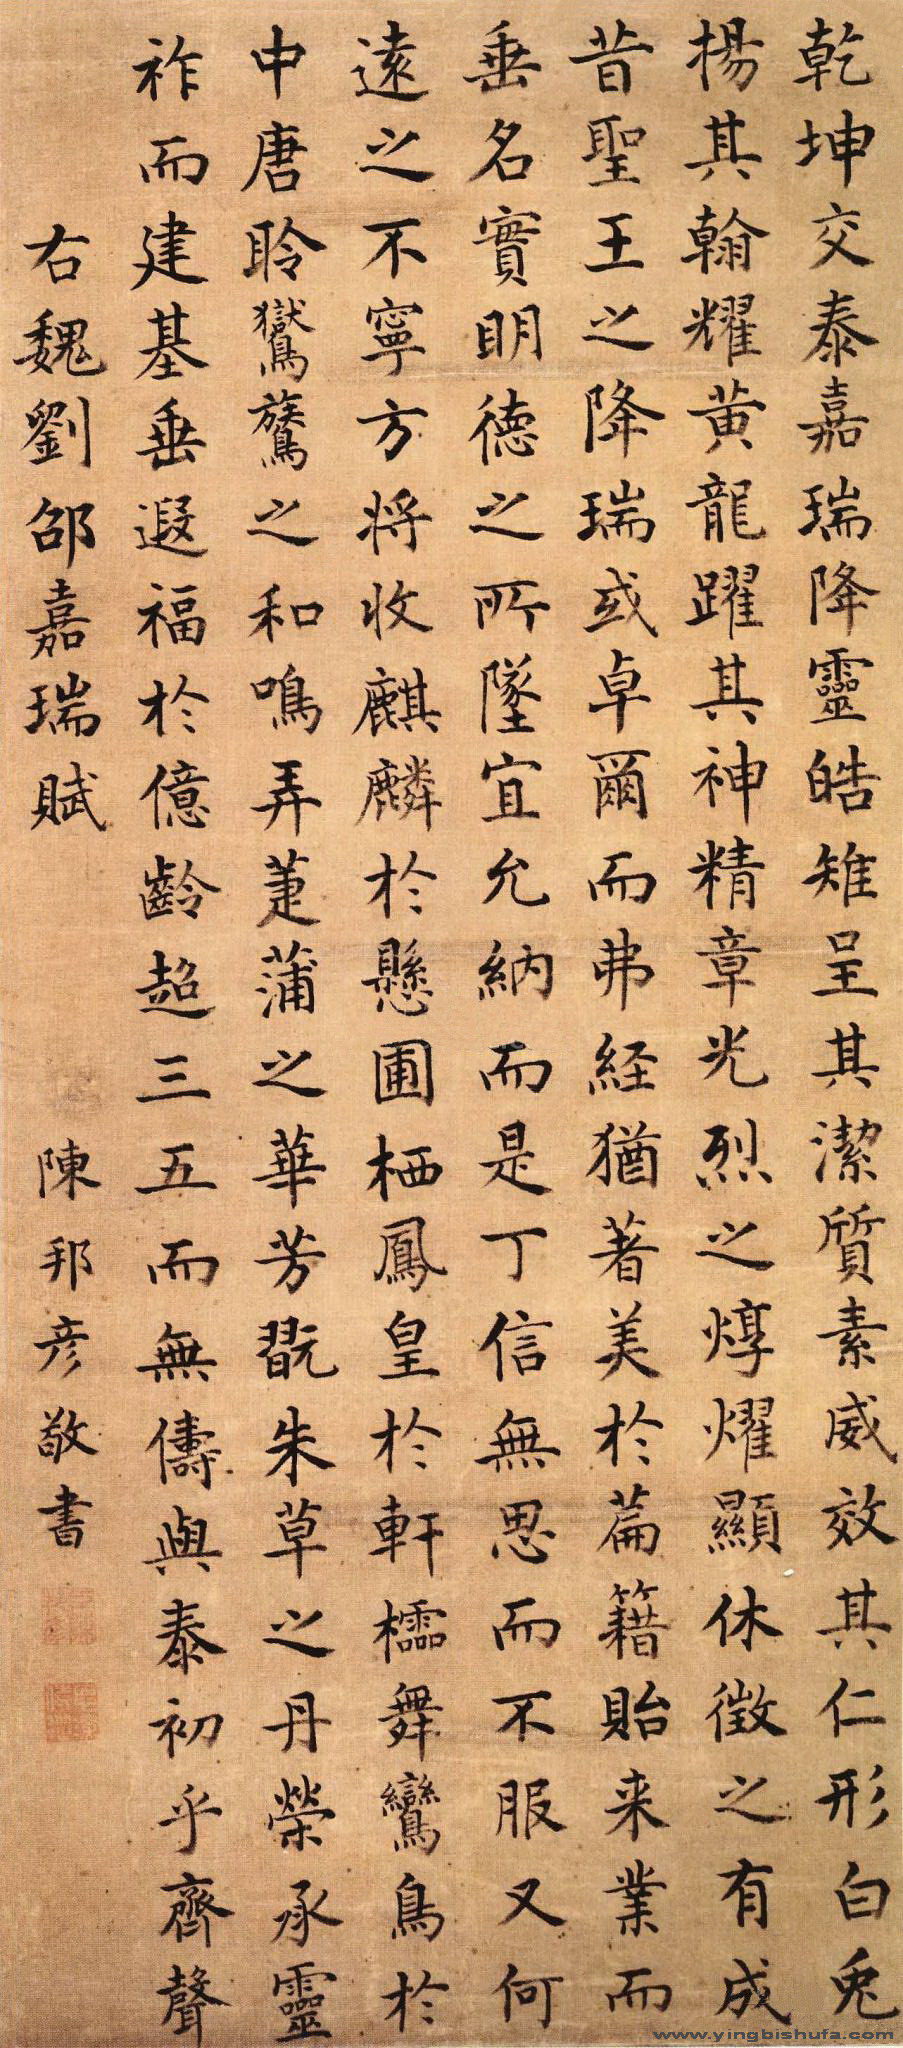 乾坤交泰嘉瑞降靈皓雉呈其潔質素威效其仁形白兎
揚其翰耀黄龍躍其神精章光烈之焞燿顯休徴之有成
昔聖王之降瑞或卓爾而弗経猶著美於篇籍貽来業而
垂名實明德之所墜宜允納而是丁信無思而不服又何
遠之不寧方将收麒麟於懸圃栖鳳皇於軒櫺舞鸞鳥於
中唐聆鸑鷟之和鳴弄萐蒲之華芳翫朱草之丹榮承靈
祚而建基垂遐福於億齡超三五而無儔與泰初乎齊聲
右魏劉邵嘉瑞賦
陳邦彦敬書
www.yingbishufa.com